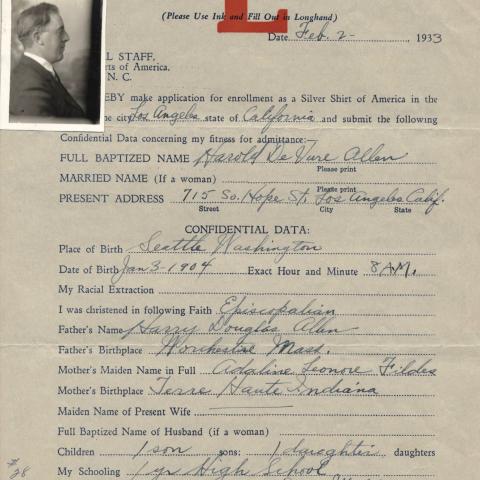 (Please Use Ink and Fill Out in Longhand)
Date Feb. 2- 1933
L STAFF,
rts of America.
N. C.
EBY make application for enrollment as a Silver Shirt of America in the
the city Los Angeles state of California and submit the following
Confidential Data concerning my fitness for admittance:
FULL BAPTIZED NAME Harold De Vere Allen
Please print
MARRIED NAME (If a woman)
Please print
PRESENT ADDRESS 715 So. Hope St. Los Angeles Calif.
Street City State
CONFIDENTIAL DATA:
Place of Birth Seattle Washington
Date of Birth Jan 3-1904 Exact Hour and Minute 8 AM.
My Racial Extraction
I was christened in following Faith Episcopalian
Father's Name Harry Douglas Allen
Father's Birthplace Mass.
Mother's Maiden Name in Full Adaline Leonore Fildes
Mother's Birthplace Terre Haute Indiana
Maiden Name of Present Wife
Full Baptized Name of Husband (if a woman)
Children 1 son sons: 1 daughter daughters
# 28
My Schooling 1 yr High School